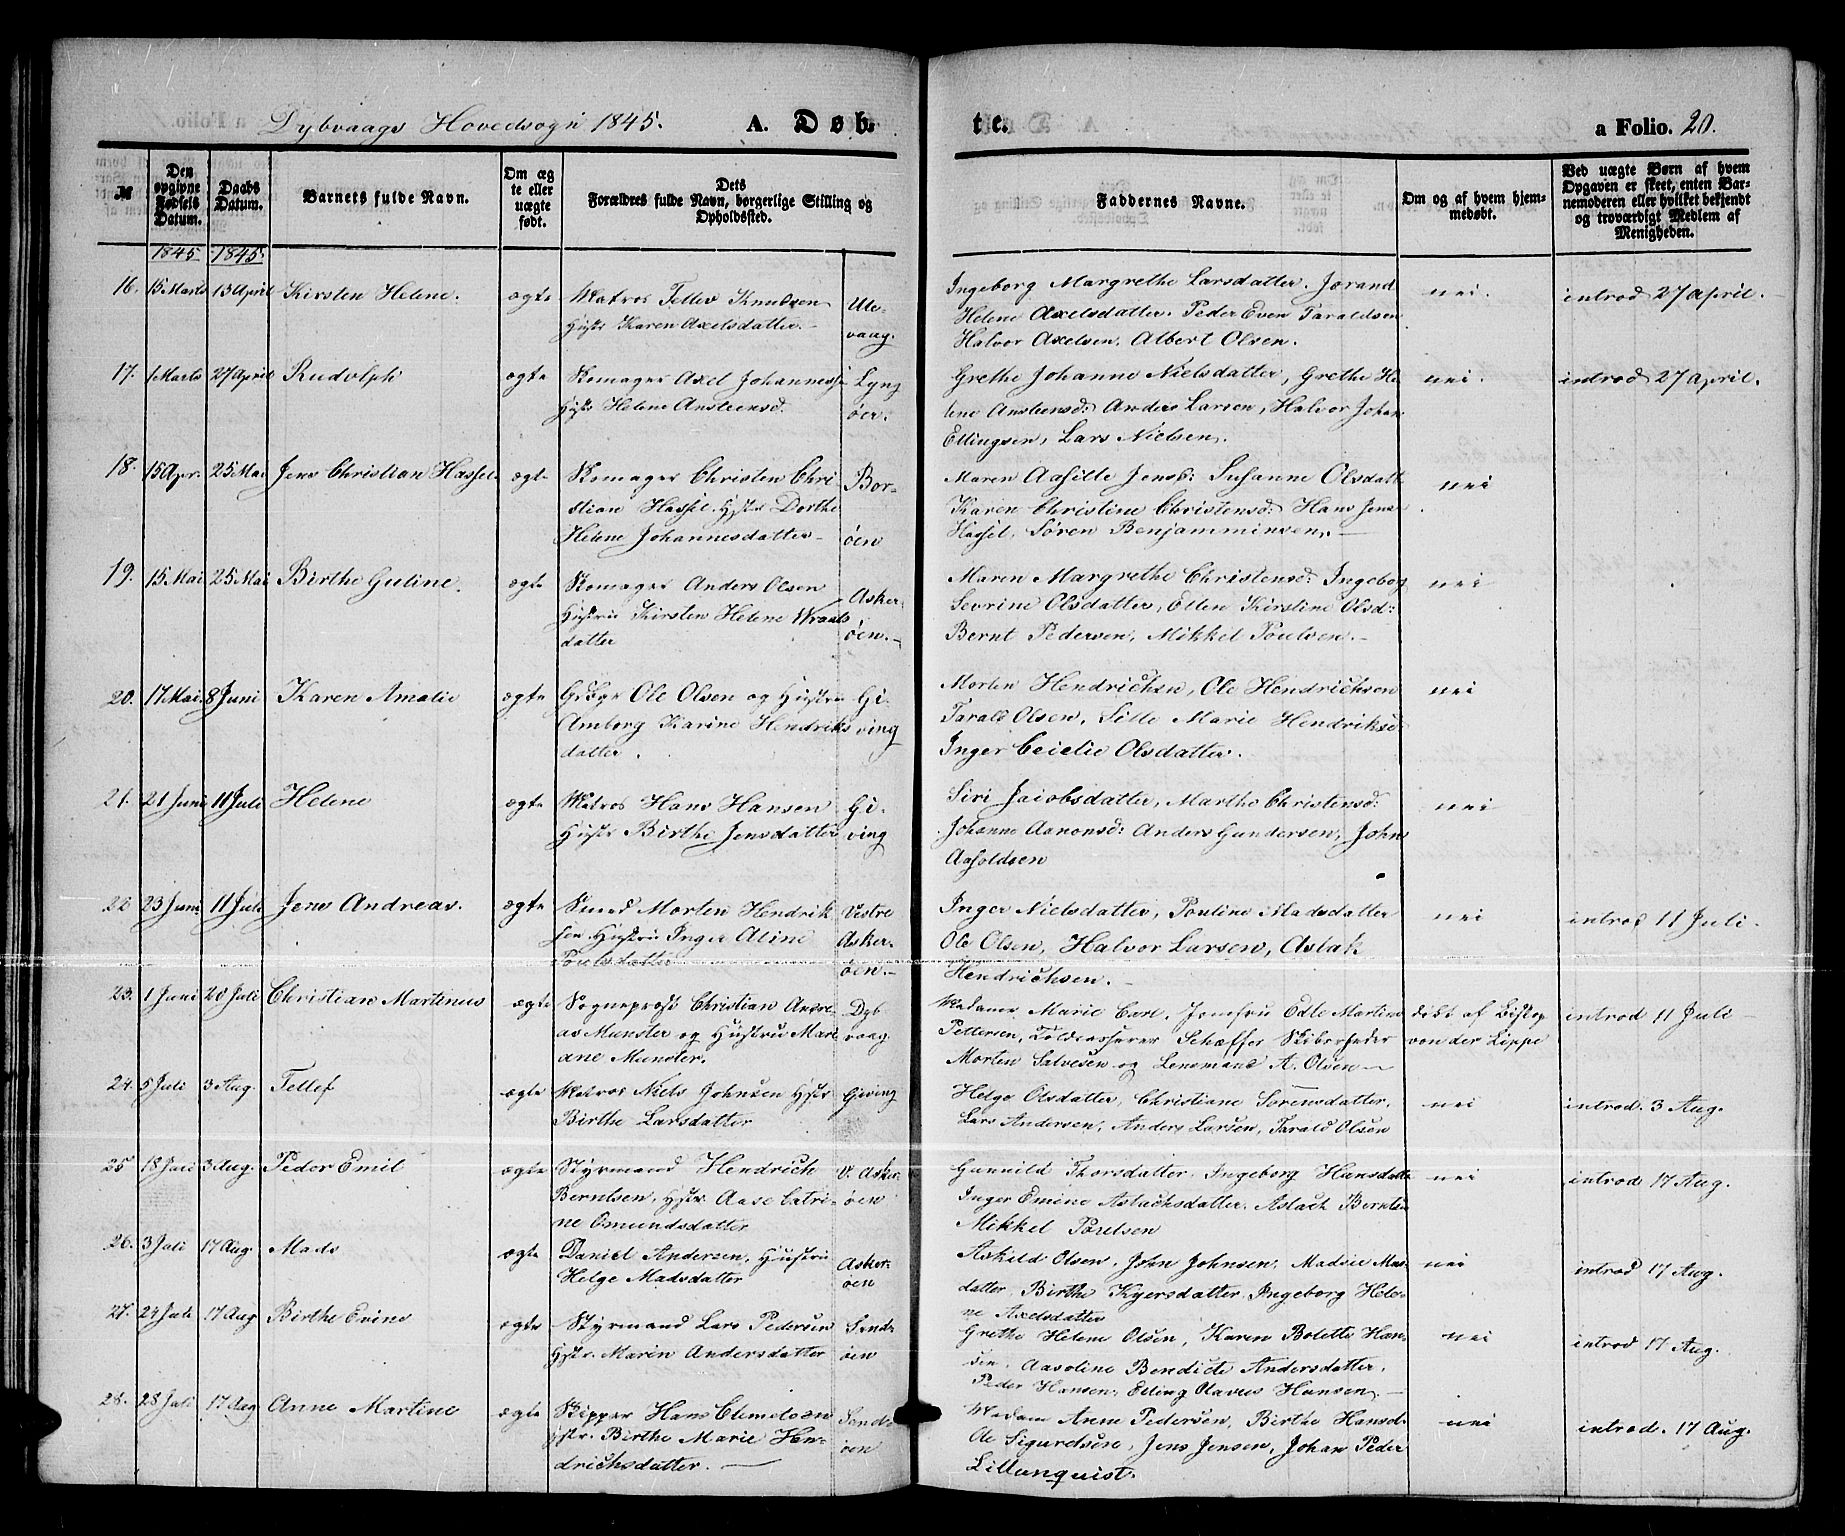 Dybvaags Hovedsogn 1845. A. Døb- te. a Folio. 20.
№ Den opgivne Fødsels Datum. Daabs Datum. Barnets fulde Navn. Om ægte eller uægte født. Dets Forældres fulde Navn, borgerlige Stilling og Opholdssted. Faddernes Navne. Om og af hvem hjemmedøbt. Ved uægte Børn af hvem Opgaven er skeet, enten Barnemoderen eller hvilket bekjendt og troværdigt Medlem af Menigheden.
1845 1845.
16. 15 Marts 13 April Kirsten Helene. ægte Matros Tellev Knudsen
Hustr Karen Axelsdatter.
Ule-
vaag.
Ingeborg Margrethe Larsdatter. Jorand
Helene Axelsdatter. Peder Even Taraldsen
Halvor Axelsen, Albert Olsen.
nei. introd 27 april.
17. 1 Marts 27 April Rudolph ægte Skomager Axel Johanness
Hustr Helene Ansteensd.
Lyng
öer.
Grethe Johanne Nielsdatter, Grethe He
lene Ansteensd: Anders Larsen, Halvor Johan
Ellingsen, Lars Nielsen.
nei. introd 27 april.
18. 15 Apr. 25 Mai Jens Christian Hassel ægte Skomager Christen Chri
stian Hassel. Hstr Dorthe
Helene Johannesdatter
Bor-
öen
Maren Aasille Jensd: Susanne Olsdatt
Karen Christine Christensd: Hans Jens
Hassel, Søren Benjamminsen.
nei
19. 15 Mai 25 Mai Birthe Guline. ægte Skomager Anders Olsen
Hustru Kirsten Helene Wraals
datter
Asker-
öen.
Maren Margrethe Christensd: Ingeborg
Sevrine Olsdatter, Ellen Kirstine Olsd:
Bernt Pedersen, Mikkel Poulsen.
nei
20. 17 Mai 8 Juni Karen Amalie ægte Gbgr Ole Olsen og Hustru
Amborg Karine Hendriks
datter.
Gi-
ving
Morten Hendrichsn, Ole Hendrichsen
Tarald Olsen, Sille Marie Hendriksd
Inger Ceielie Olsdatter.
nei
21. 21 Juni 11 Juli Helene ægte Matros Hans Hansen
Hustr Birthe Jensdatter
Gi-
ving
Siri Jaiobsdatter, Marthe Christensd:
Johanne Aanonsd: Anders Gundersen, John
Aasoldsen
nei
22 23 Juni 11 Juli Jens Andreas. ægte Smed Morten Hendrik
sen. Hustru Inger Aline
Poulsdatter
Vestre
Asker-
öen.
Inger Nielsdatter, Pouline Madsdatter
Ole Olsen, Halvor Larsen, Aslak
Hendrichsen.
nei introd 11 Juli.
23. 1 Juni 20 Juli Christian Martinus ægte Sogneprest Christian Andre
as Munster og Hustru Mari
ane Munster.
Dyb
vaag.
Madame Marie Carl, Jomfru Edle Martine
Pettersen, Toldcasserer Schæffer Skibsrheder
Morten Salvesen og Lensmand A. Olsen
döbt af Biskop
von der Lippe
introd 11 Juli
24. 5 Juli 3 Aug. Tellef ægte Matros Niels Johnsen Hstr
Birthe Larsdatter
Giving
Helge Olsdatter, Christiane Sørensdatter,
Lars Andersen, Anders Larsen, Tarald Olsen
nei introd. 3 Aug.
25 18 Juli 3 Aug. Peder Emil ægte Styrmand Hendrich
Berntsen, Hstr Aase Catri-
ne Omundsdatter
V. Asker-
öen
Gunnild Thorsdatter, Ingeborg Hansdatter
Inger Emine Aslachsdatter. Aslach Berntsen
Mikkel Poulsen
nei introd 17 Aug.
26. 3 Juli 17 Aug. Mads ægte Daniel Andersen, Hustru
Helge Madsdatter
Asker-
öen
Askild Olsen, John Johnsen, Madsie Mas-
datter, Birthe Kjersdatter, Ingeborg Hele-
ne Axelsdatter
nei introd 17 Aug.
27. 24 Juli 17 Aug Birthe Evine ægte Styrmand Lars Pedersen
Hstr. Maren Andersdatter
Sand-
öen
Grethe Helene Olsen, Karen Bolette Han-
sen, Aasoline Bendicte Andersdatter,
Peder Hansen, Elling Olavus Hansen.
nei introd 17 Aug.
28. 28 Juli 17 Aug Anne Martine ægte Skipper Hans Clemetsen
Hstr. Birthe Marie Hen-
drichsdatter.
Sand-
öen
Madam Anne Pedersen, Birthe Hansd.
Ole Sigurdsen, Jens Jensen, Johan Peder
Lillunquist.
nei introd. 17 Aug.